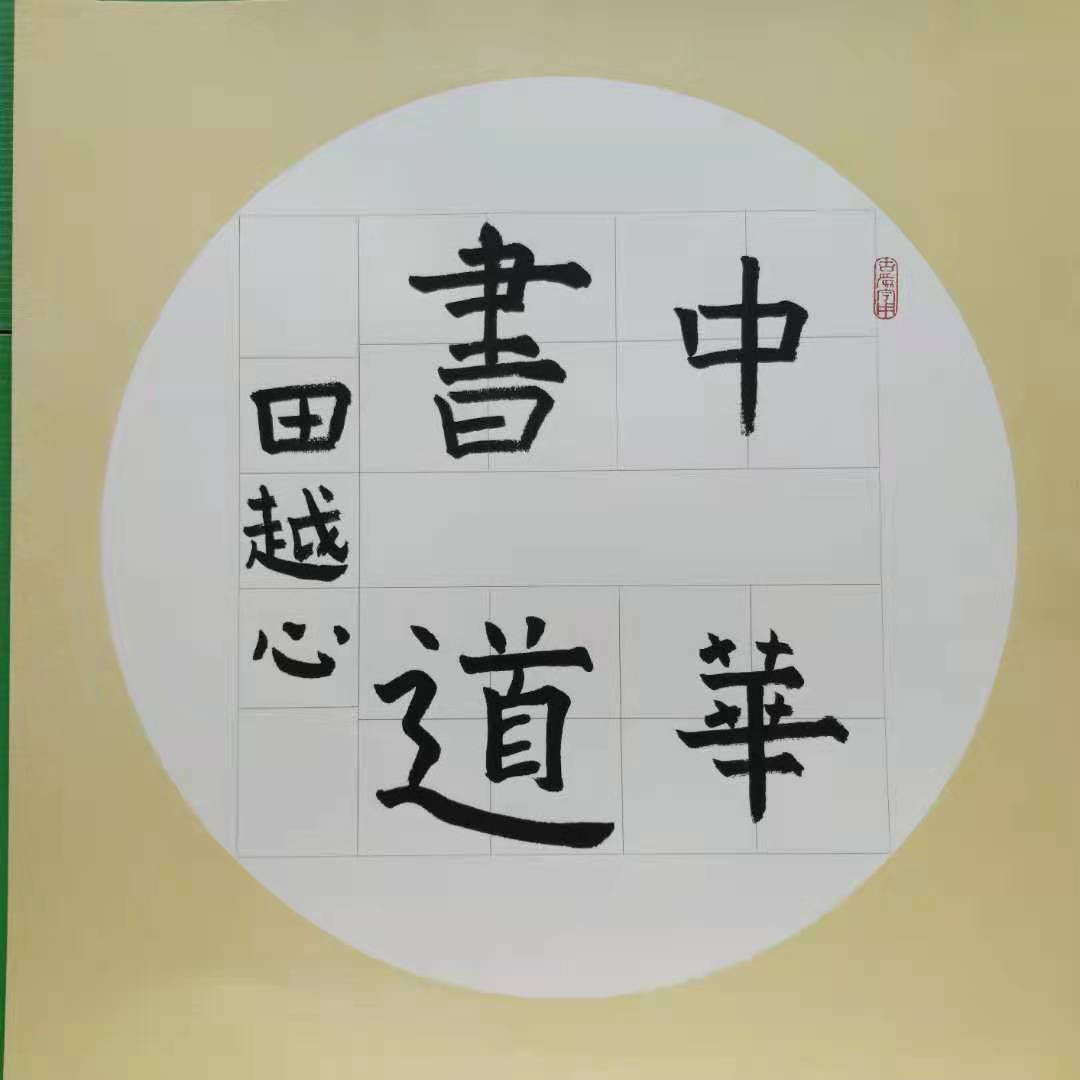 中華
書道
田越心